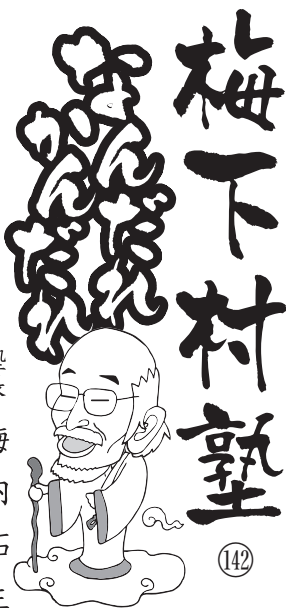 梅下村塾
142
なんだれ
かんだれ